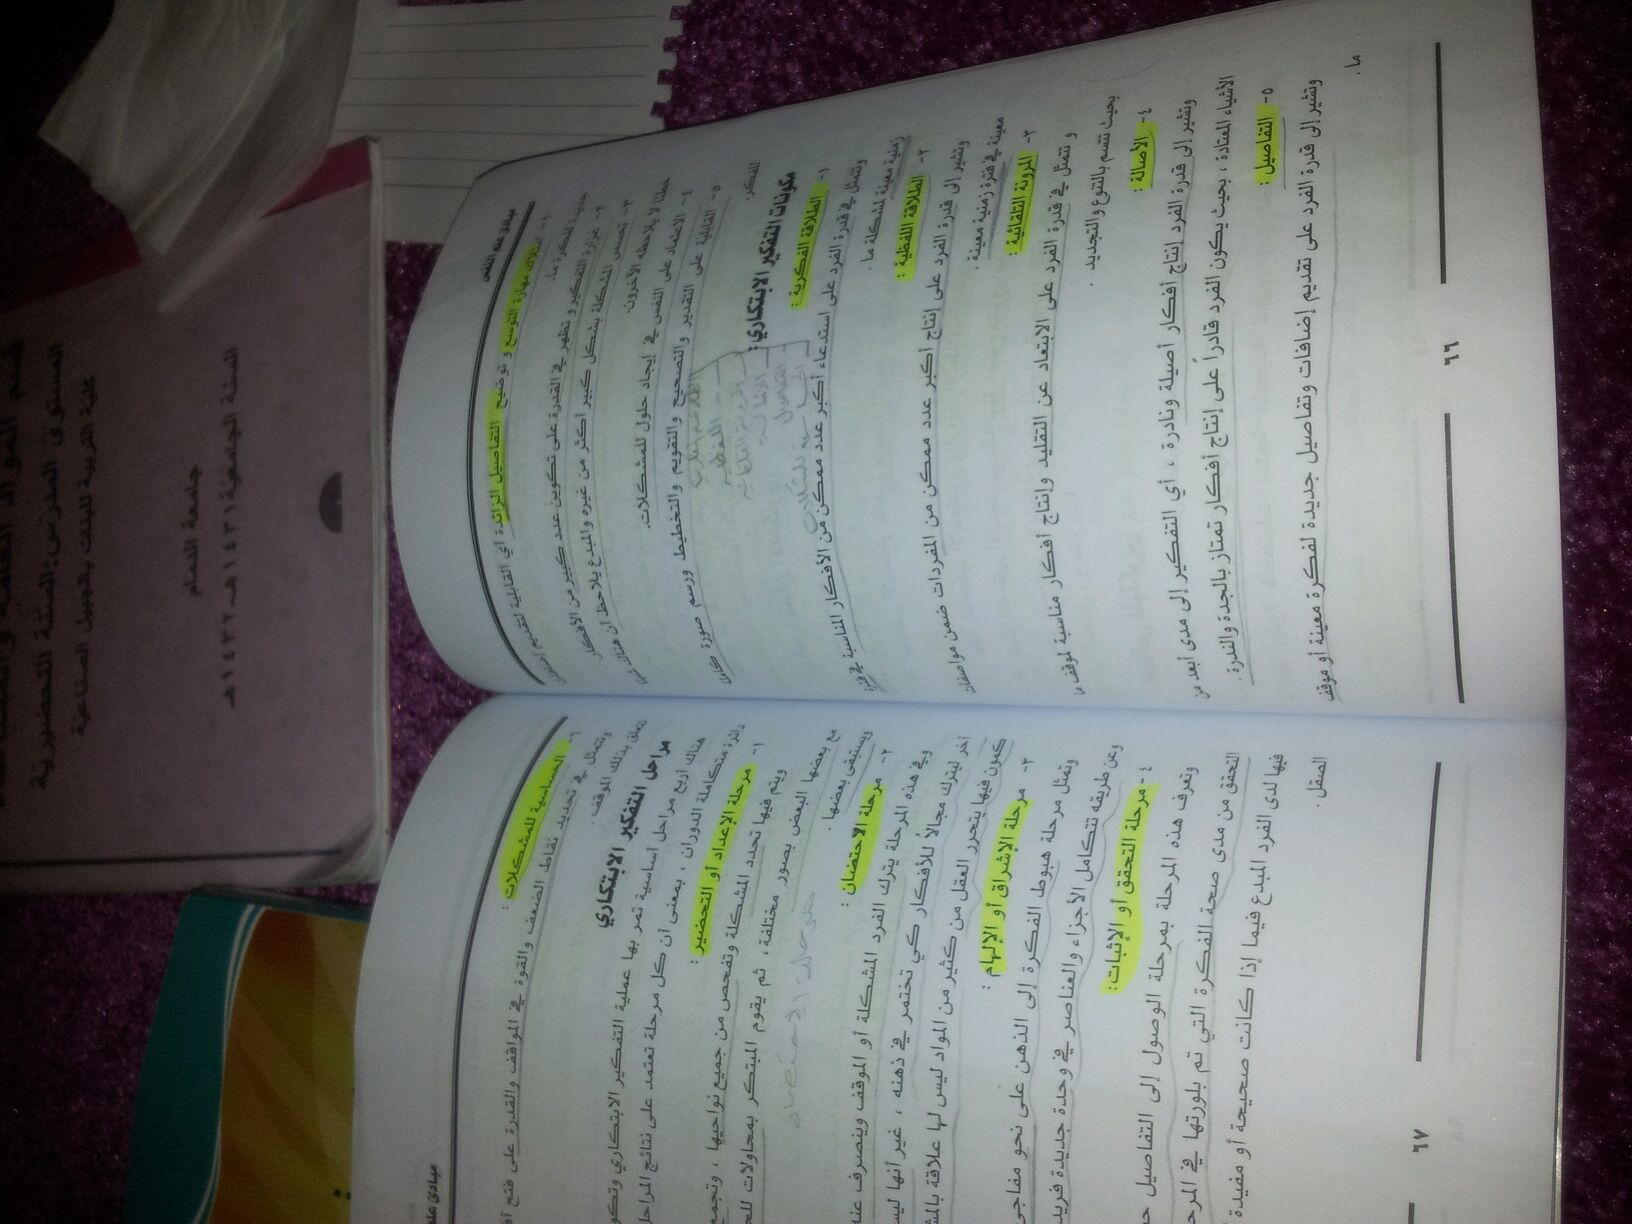 مبادئ علم النفس
١- امتلاك مهارة التوسع و توضيح التفاصيل الزائدة أي القابلية لتقديم
جديدة لفكرة ما.
٢- غزارة التفكير و تظهر في القدرة على تكوين عدد كبير من الأفكار
٣- تحسس المشكلة بشكل كبير أكثر من غيره والمبدع يلاحظ أن هناك
خطئا لا يلاحظه الآخرون.
٤- الاعتماد على النفس في إيجاد حلول للمشكلات.
٥- القابلية على التقدير والتصحيح والتقويم والتخطيط ورسم صورة
للفكر.
مكونات التفكير الابتكاري:
١- الطلاقة الفكرية :
وتتمثل في قدرة الفرد على استدعاء أكبر عدد ممكن من الأفكار المناسبة في فترة
زمنية معينة لمشكلة ما .
٢- الطلاقة اللفظية :
وتشير إلى قدرة الفرد على إنتاج أكبر عدد ممكن من المفردات ضمن مواصفات
معينة في فترة زمنية معينة .
٣- المرونة التلقائية :
و تتمثل في قدرة الفرد على الابتعاد عن التقليد وإنتاج أفكار مناسبة لموقف ما
بحيث تتسم بالتنوع والتجديد .
٤- الأصالة :
وتشير إلى قدرة الفرد إنتاج أفكار أصيلة ونادرة ، أي التفكير إلى مدى أبعد من
الأشياء المعتادة ، بحيث يكون الفرد قادراً على إنتاج أفكار تمتاز بالجدة والندرة .
٥- التفاصيل :
وتشير إلى قدرة الفرد على تقديم إضافات وتفاصيل جديدة لفكرة معينة أو موقف
ما .
٦٦
مبادئ
٦- الحساسية للمشكلات :
وتتمثل في تحديد نقاط الضعف والقوة في المواقف والقدرة على فتح
تتعلق بذلك الموقف .
مراحل التفكير الابتكاري
هناك أربع مراحل أساسية تمر بها عملية التفكير الابتكاري
دائرة متكاملة الدوران ، بمعنى أن كل مرحلة تعتمد على نتائج
١- مرحلة الإعداد أو التحضير :
ويتم فيها تحدد المشكلة وتفحص من جميع نواحيها ، وتجمع
مع بعضها البعض بصور مختلفة ، ثم يقوم المبتكر بمحاولات
ويستبقى بعضها .
مرحلة الاحتضان
٢- مرحلة الاحتضان :
وفي هذه المرحلة يترك الفرد المشكلة أو الموقف وينصرف عنه
آخر ليترك مجالاً للأفكار كي تختمر في ذهنه ، غير أنها
كمون فيها يتحرر العقل من كثير من المواد ليس لها علاقة
٣- مرحلة الإشراق أو الإلهام :
وتمثل مرحلة هبوط الفكرة إلى الذهن على نحو
وعن طريقه تتكامل الأجزاء والعناصر في وحدة جديدة
٤- مرحلة التحقق أو الإثبات:
وتعرف هذه المرحلة بمرحلة الوصول إلى التفاصيل
التحقق من مدى صحة الفكرة التي تم بلورتها في
فيها لدى الفرد المبدع فيما إذا كانت صحيحة أو مفيدة
الصقل .
٦٧
قسم المواد العامة
المستوى المدرس:السنة التحضيرية
كلية التربية للبنات بالجبيل الصناعية
جامعة الدمام
السنة الجامعية ١٤٣١هـ-١٤٣٢هـ